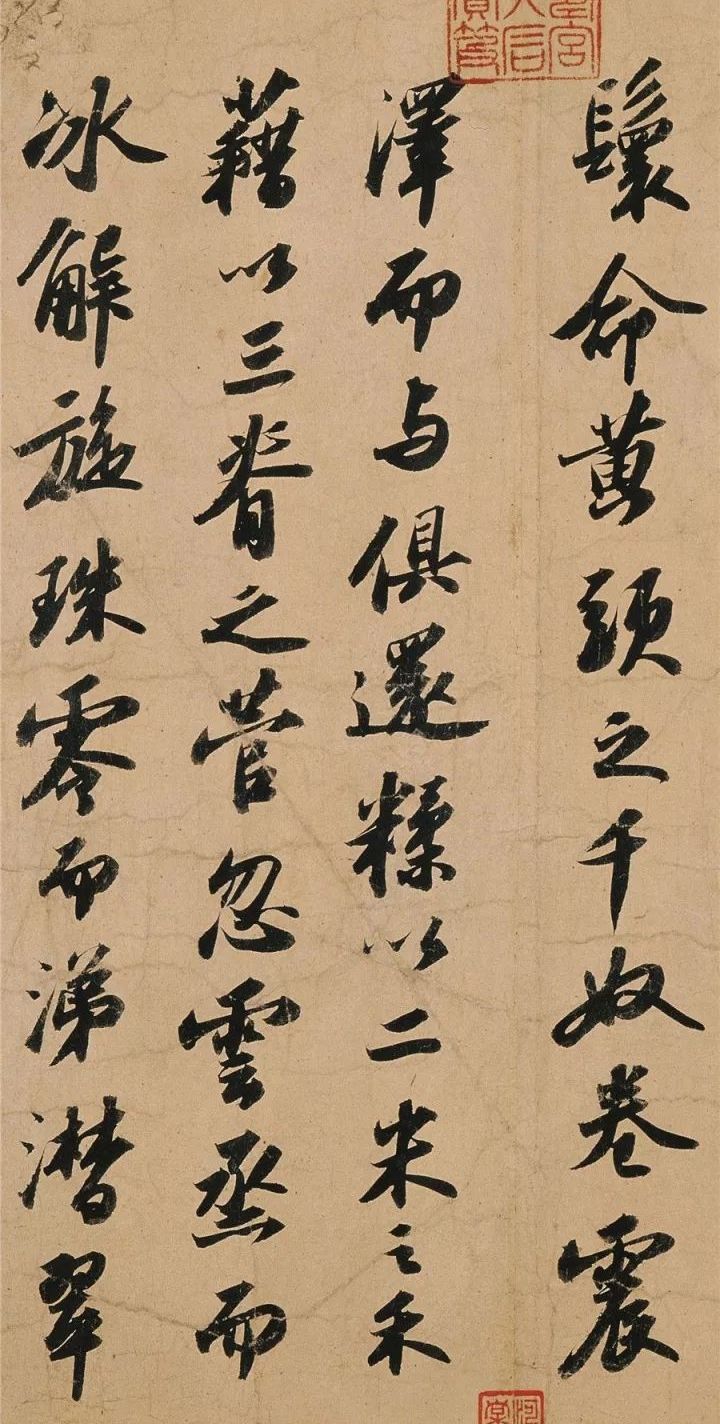 鬟命黃頭之千奴卷震
澤而与俱還糅以二米之禾
藉以三脊之菅忽雲烝而
冰解旋珠零而涕潸翠